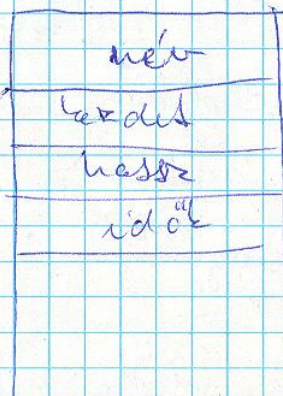 név
kezdet
hossz
idők